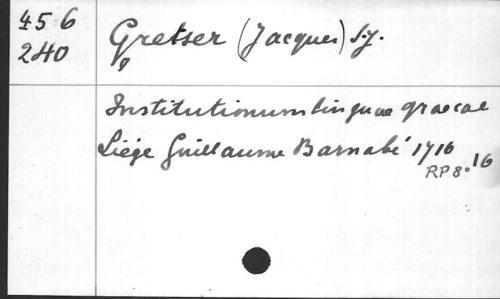 456
240
Gretser (Jacques) s.j.
Institutionum linguae graecae
Liége Guillaume Barnabé 1716
RP 8° 16